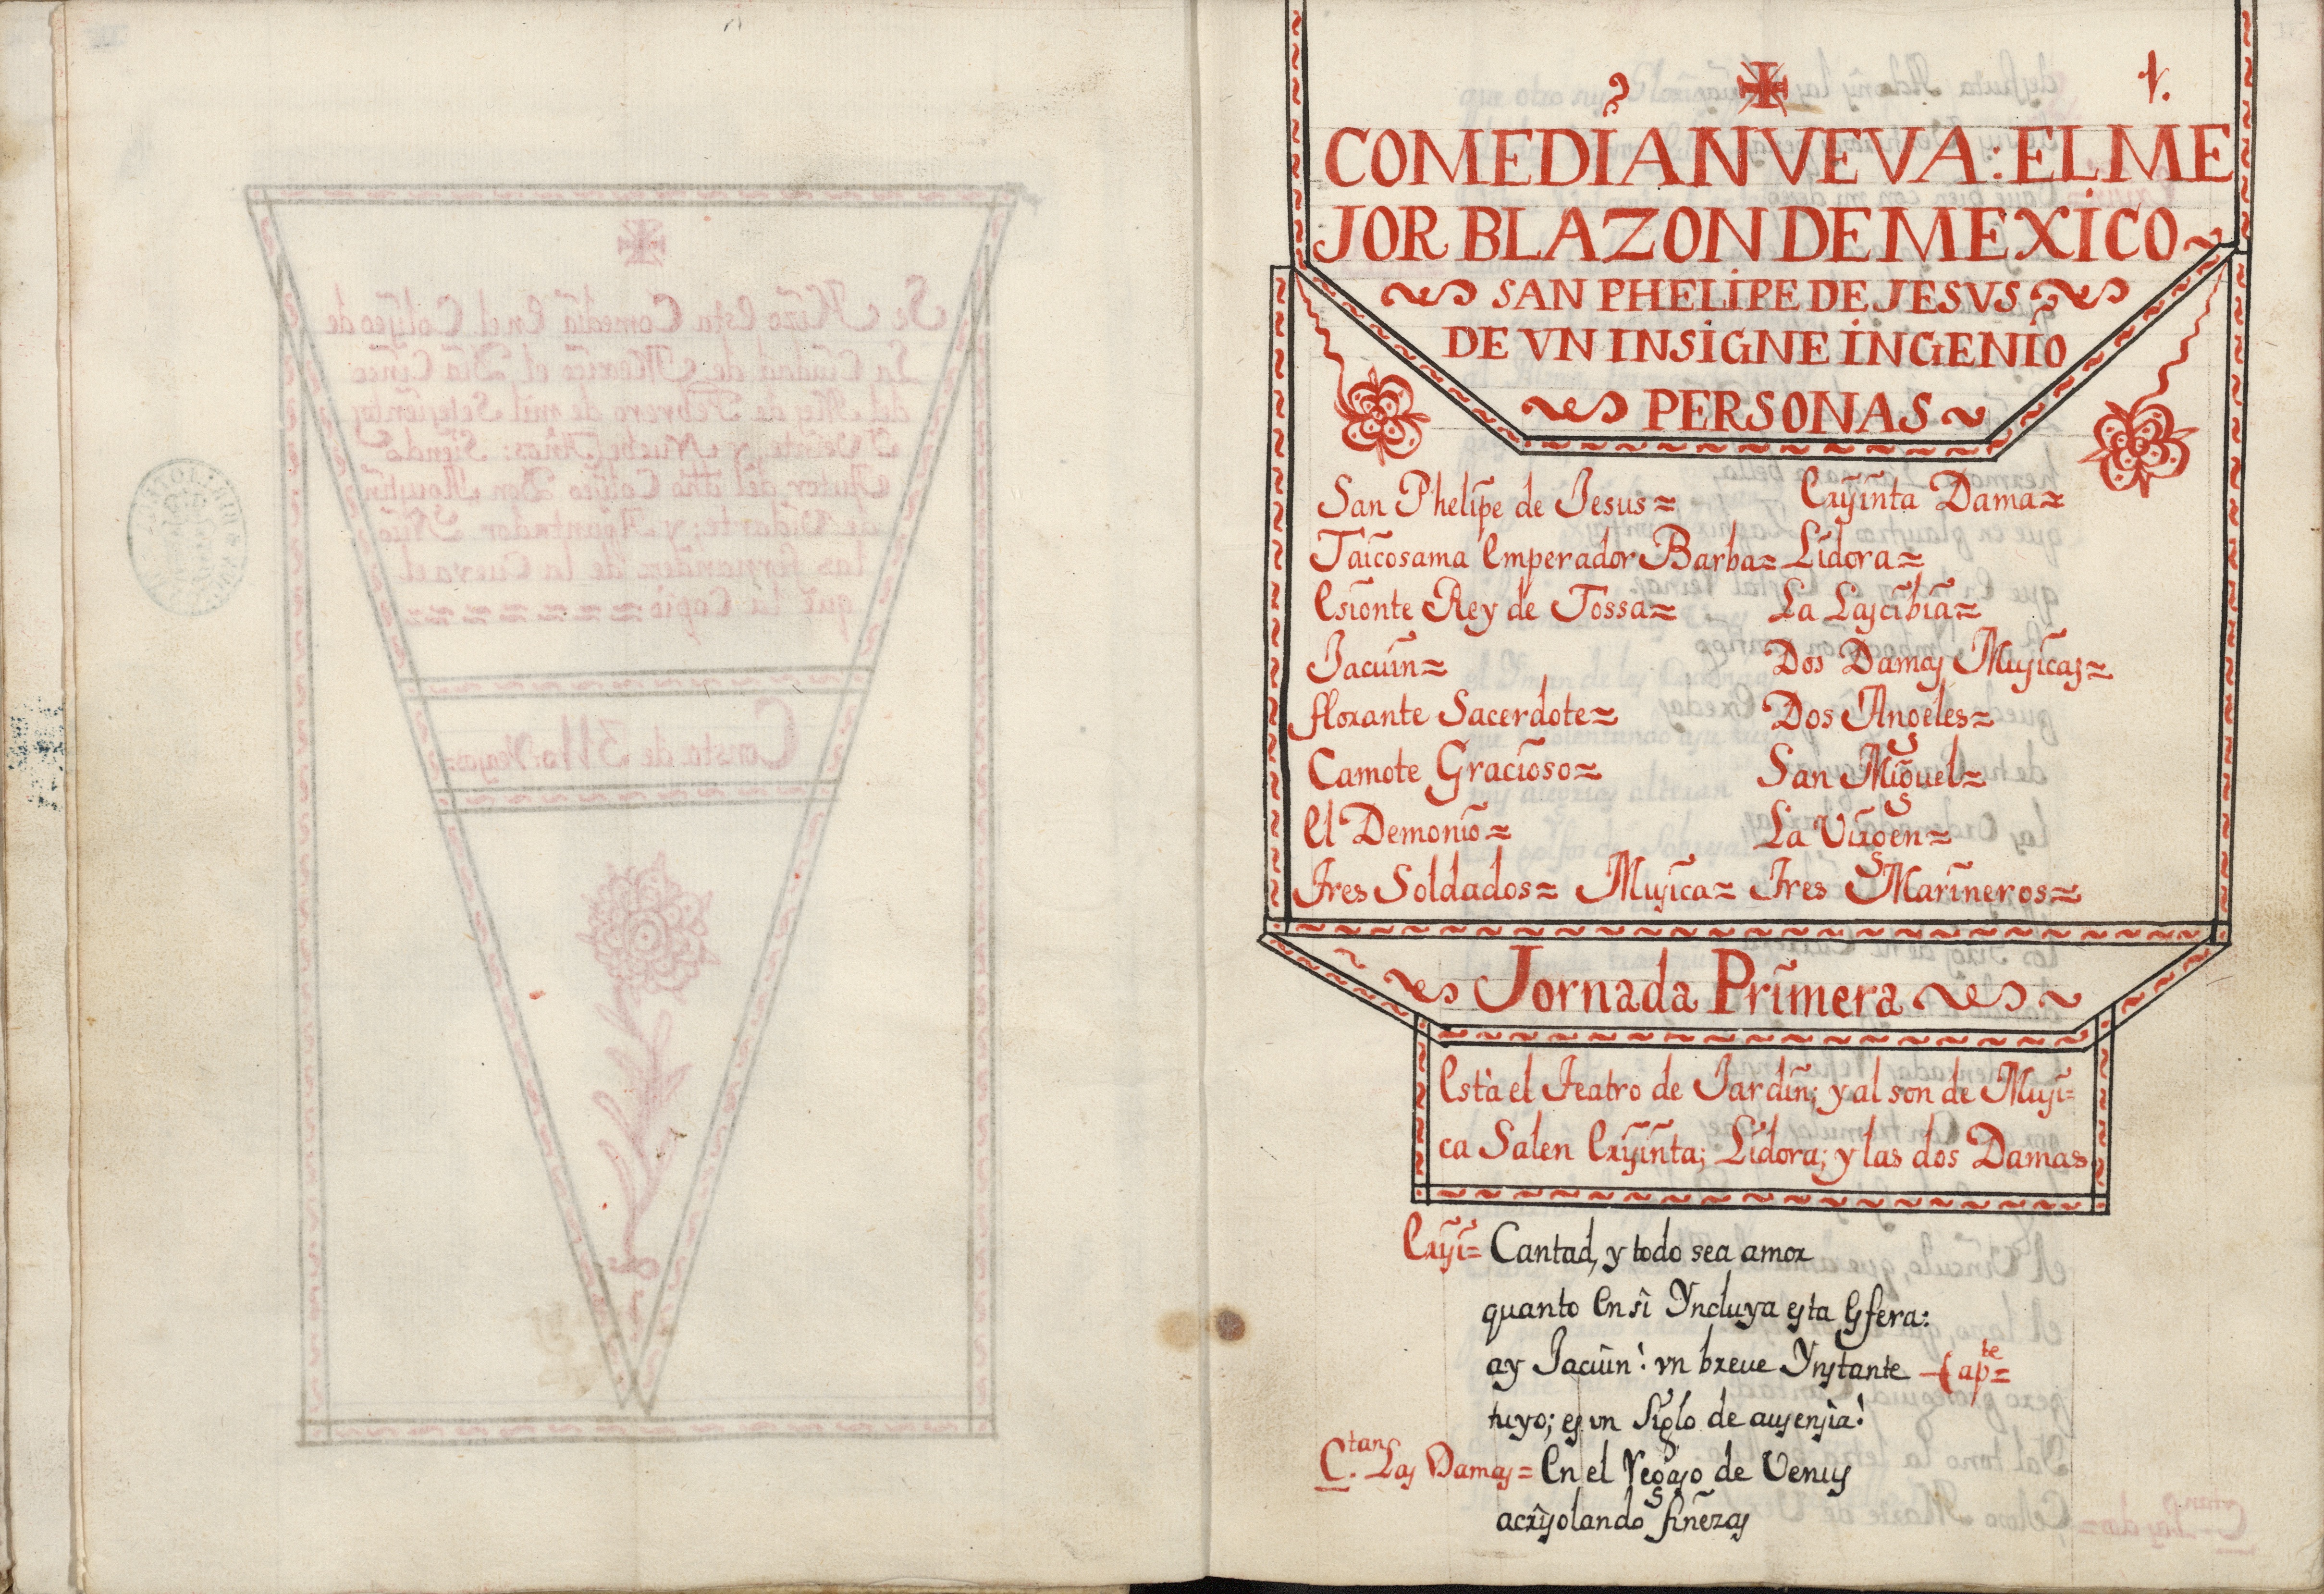 1.
COMEDIA NVEVA: EL ME
JOR BLAZON DE MEXICO
SAN PHELIPE DE JESVS
DE VN INSIGNE INGENIO
PERSONAS
San Phelipe de Jesus= Crysinta Dama=
Taicosama Emperador Barba= Lidora=
Esionte Rey de Tossa= La Lascibia=
Jacuin= Dos Damas Musicas=
florante Sacerdote= Dos Angeles=
Camote Gracioso= San Miguel=
El Demonio= La Virgen=
Tres Soldados= Musica= Tres Marineros=
Jornada Primera
Està el Teatro de Jardin; y al son de Musi=
ca Salen Crysinta; Lidora; y las dos Damas
Crysi= Cantad, y todo sea amor
quanto En sî Yncluya esta Esfera:
ay Jacuin! vn breue Ynstante (ap.te=
tuyo; es vn Siglo de ausensia!
C.tan Las Damas= En el regaso de Venus
acrysolando finezas